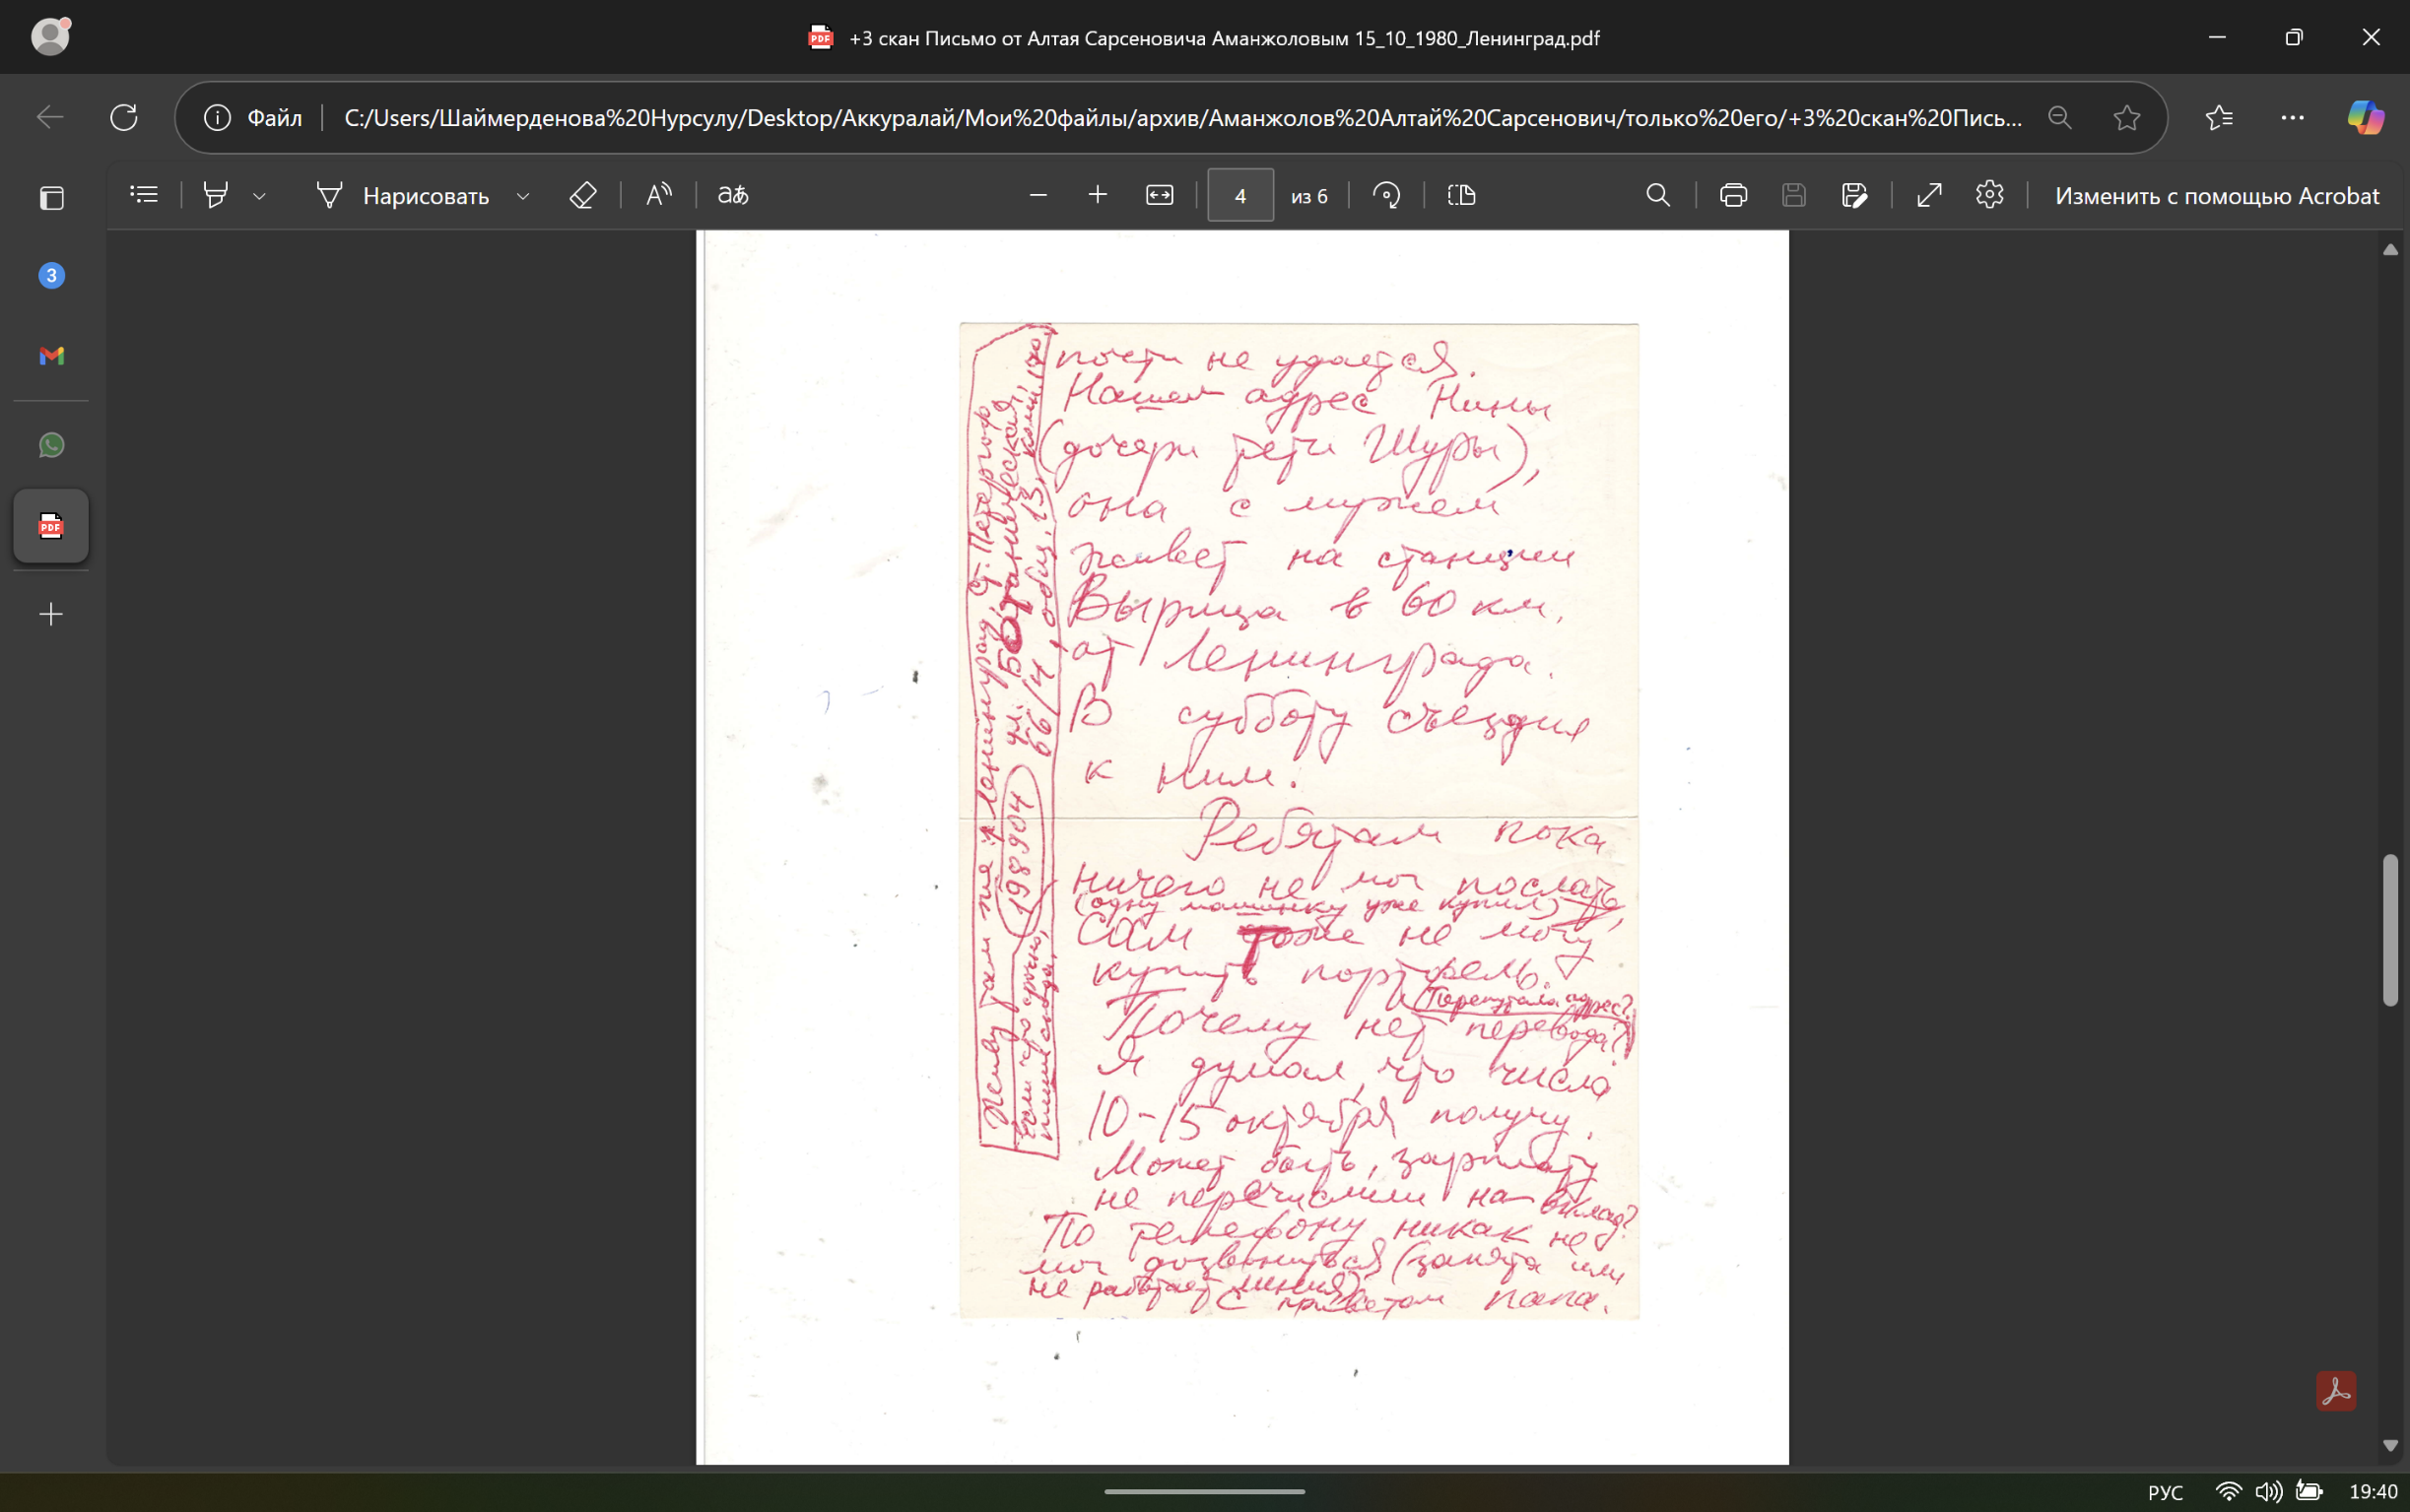 +3 скан Письмо от Алтая Сарсеновича Аманжоловым 15_10_1980_Ленинград.pdf
Файл
C:/Users/Шаймерденова%20Нурсулу/Desktop/Аккуралай/Мои%20файлы/архив/Аманжолов%20Алтай%20Сарсенович/только%20его/+3%20скан%20Пись...
Нарисовать
4 из 6
Изменить с помощью Acrobat
3
почти не удается.
Нашел адрес Нины
(дочери тети Шуры),
она с мужем
живет на станции
Вырица в 60 км.
от Ленинграда.
В субботу съездил
к ним.
Ребятам пока
ничего не мог послать,
(одну машинку уже купил)
Сам тоже не могу
купить портфель.
(Перепутала адрес?)
Почему нет перевода?
Я думал, что числа
10-15 октября получу.
Может быть, зарплату
не перечислили на вклад?
По телефону никак не
мог дозвониться (занята или
не работает линия).
С приветом папа.
Живу там же: Ленинград, ст. Петергоф
198904 ул. Ботаническая,
66/4, общ. 13, комн. 140
Если что срочно,
пиши сюда.
РУС
19:40